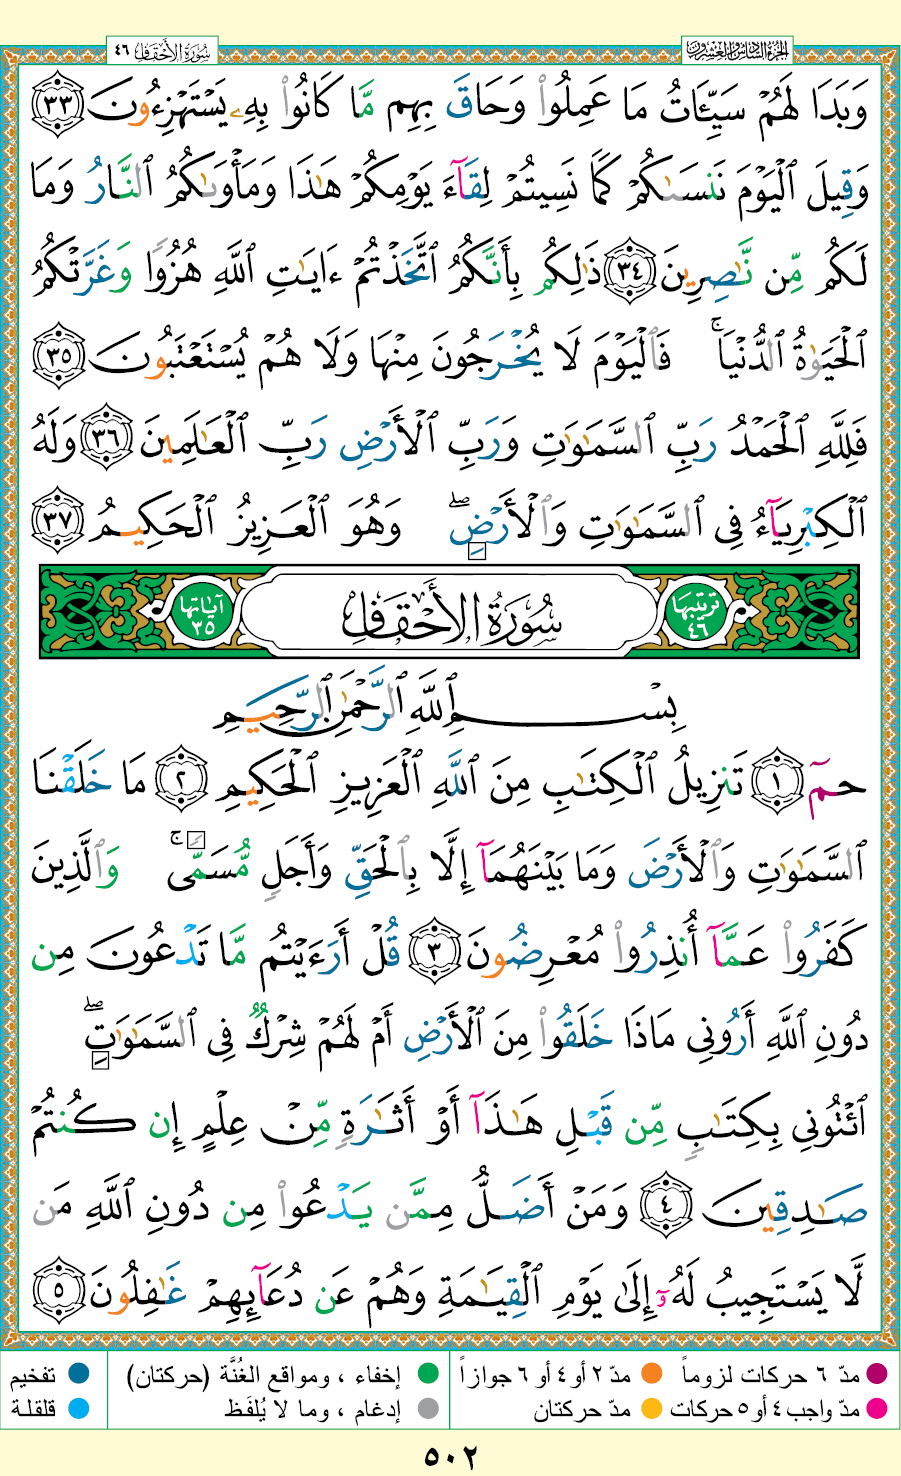 الجزء السادس والعشرون
سورة الأحقاف ٤٦
وَبَدَا لَهُمْ سَيِّـَٔاتُ مَا عَمِلُوا۟ وَحَاقَ بِهِم مَّا كَانُوا۟ بِهِۦ يَسْتَهْزِءُونَ ٣٣
وَقِيلَ ٱلْيَوْمَ نَنسَىٰكُمْ كَمَا نَسِيتُمْ لِقَآءَ يَوْمِكُمْ هَٰذَا وَمَأْوَىٰكُمُ ٱلنَّارُ وَمَا
لَكُم مِّن نَّٰصِرِينَ ٣٤ ذَٰلِكُم بِأَنَّكُمُ ٱتَّخَذْتُمْ ءَايَٰتِ ٱللَّهِ هُزُوًا وَغَرَّتْكُمُ
ٱلْحَيَوٰةُ ٱلدُّنْيَا ۚ فَٱلْيَوْمَ لَا يُخْرَجُونَ مِنْهَا وَلَا هُمْ يُسْتَعْتَبُونَ ٣٥
فَلِلَّهِ ٱلْحَمْدُ رَبِّ ٱلسَّمَٰوَٰتِ وَرَبِّ ٱلْأَرْضِ رَبِّ ٱلْعَٰلَمِينَ ٣٦ وَلَهُ
ٱلْكِبْرِيَآءُ فِى ٱلسَّمَٰوَٰتِ وَٱلْأَرْضِ ۖ وَهُوَ ٱلْعَزِيزُ ٱلْحَكِيمُ ٣٧
ترتيبها ٤٦ سُورَةُ الأَحْقَافِ آياتها ٣٥
بِسْمِ ٱللَّهِ ٱلرَّحْمَٰنِ ٱلرَّحِيمِ
حمٓ ١ تَنزِيلُ ٱلْكِتَٰبِ مِنَ ٱللَّهِ ٱلْعَزِيزِ ٱلْحَكِيمِ ٢ مَا خَلَقْنَا
ٱلسَّمَٰوَٰتِ وَٱلْأَرْضَ وَمَا بَيْنَهُمَآ إِلَّا بِٱلْحَقِّ وَأَجَلٍ مُّسَمًّى ۚ وَٱلَّذِينَ
كَفَرُوا۟ عَمَّآ أُنذِرُوا۟ مُعْرِضُونَ ٣ قُلْ أَرَءَيْتُم مَّا تَدْعُونَ مِن
دُونِ ٱللَّهِ أَرُونِى مَاذَا خَلَقُوا۟ مِنَ ٱلْأَرْضِ أَمْ لَهُمْ شِرْكٌ فِى ٱلسَّمَٰوَٰتِ ۖ
ٱئْتُونِى بِكِتَٰبٍ مِّن قَبْلِ هَٰذَآ أَوْ أَثَٰرَةٍ مِّنْ عِلْمٍ إِن كُنتُمْ
صَٰدِقِينَ ٤ وَمَنْ أَضَلُّ مِمَّن يَدْعُوا۟ مِن دُونِ ٱللَّهِ مَن
لَّا يَسْتَجِيبُ لَهُۥٓ إِلَىٰ يَوْمِ ٱلْقِيَٰمَةِ وَهُمْ عَن دُعَآئِهِمْ غَٰفِلُونَ ٥
مدّ ٦ حركات لزوماً مدّ ٢ أو ٤ أو ٦ جوازاً إخفاء ، ومواقع الغُنَّة (حركتان) تفخيم
مدّ واجب ٤ أو ٥ حركات مدّ حركتان إدغام ، وما لا يُلفَظ قلقلة
٥٠٢